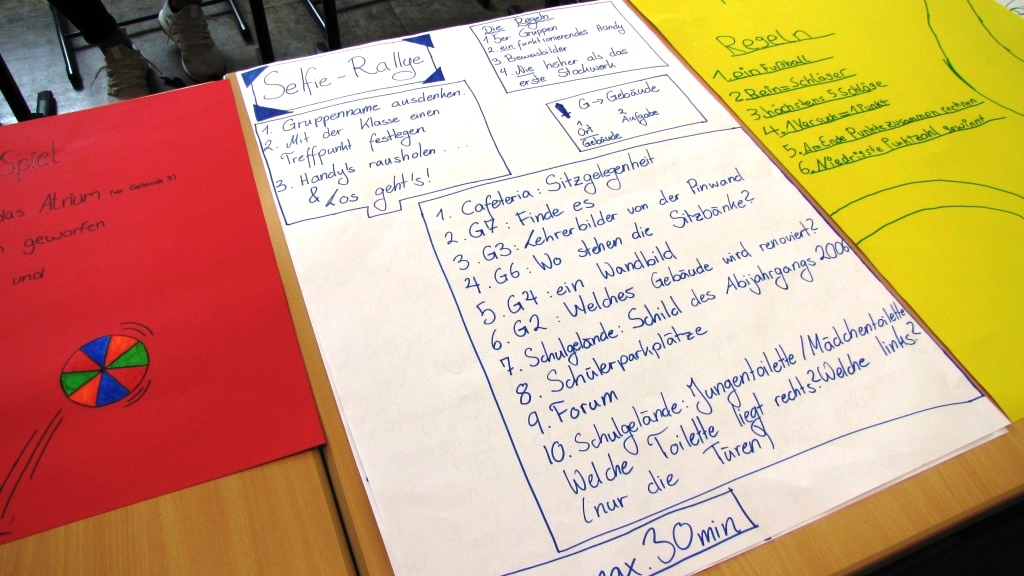 Spiel
das Atrium (vor Gebäude 3)
geworfen
und
Selfie-Rallye
1. Gruppenname ausdenken.
2. Mit der Klasse einen
Treffpunkt festlegen
3. Handy's rausholen ...
& Los geht's!
Die Regeln
1. 5er Gruppen
2. ein funktionierendes Handy
3. Beweisbilder
4. Nie höher als das
erste Stockwerk
G → Gebäude
1. 3
Ort Aufgabe
Gebäude
1. Cafeteria: Sitzgelegenheit
2. G7: Finde es
3. G3: Lehrerbilder von der Pinwand
4. G6: Wo stehen die Sitzbänke?
5. G4: ein Wandbild
6. G2: Welches Gebäude wird renoviert?
7. Schulgelände: Schild des Abijahrgangs 2006
8. Schülerparkplätze
9. Forum
10. Schulgelände: Jungentoilette/Mädchentoilette
Welche Toilette liegt rechts? Welche links?
(nur die Türen)
max. 30 min
Regeln
1. ein Fußball
2. Beins=Schläger
3. höchstens 5 Schläge
4. 1 Versuch = 1 Punkt
5. Am Ende Punkte zusammen rechnen
6. Niedrigste Punktzahl gewinnt